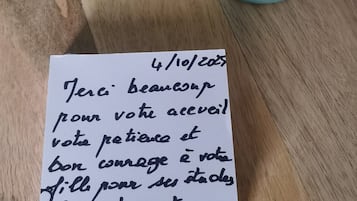 4/10/2025
Merci beaucoup
pour votre accueil
votre patience et
bon courage à votre
fille pour ses études